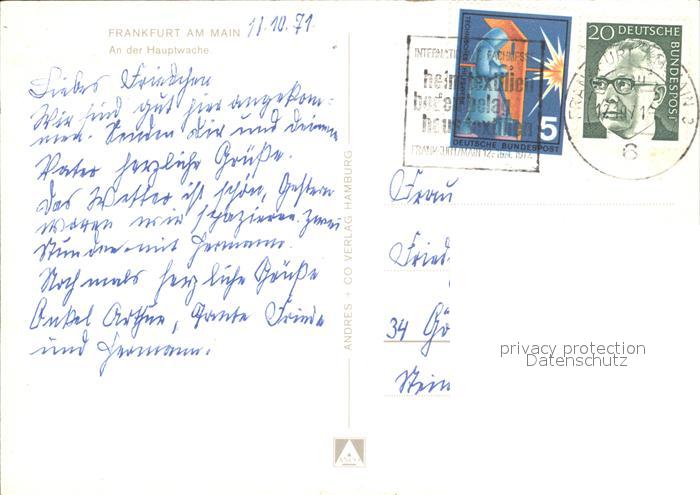 FRANKFURT AM MAIN 11.10.71
An der Hauptwache
Liebes Friedchen
Wir sind gut hier angekom-
men. Senden Dir und deinem
Vater herzliche Grüße.
Das Wetter ist schön, Gestern
waren wir spazieren. Zwei
Stunden mit Hermann.
Nochmals herzliche Grüße
Onkel Arthur, Tante Friede
und Hermann.
ANDRES + CO VERLAG HAMBURG
INTERNATIONALE FACHMESSE
heimtextilien
bodenbelag
haustextilien
FRANKFURT/MAIN
TECHNISCHES HILFSWERK
5
DEUTSCHE BUNDESPOST
20 DEUTSCHE
BUNDESPOST
FRANKFURT
6
Frau
Fried
34 Gö
Stein
privacy protection
Datenschutz